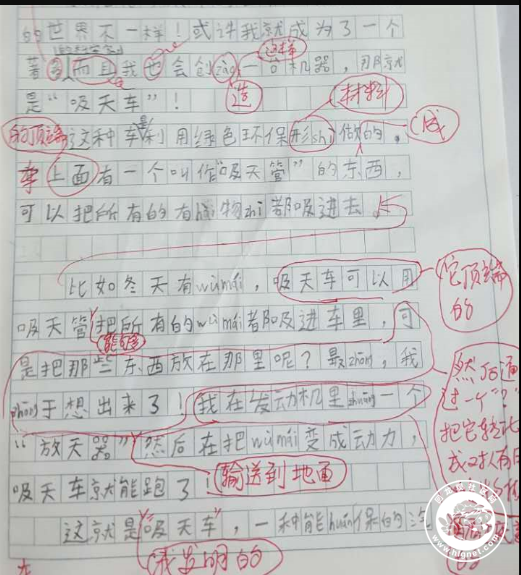 的世界不一样！或许我就成为了一个
著名
而且我也会创zào一台机器，那就
这样
造
是“吸天车”！
材料
的顶端
这种车是利用绿色环保形shì做的。
成
车上面有一个叫作“吸天管”的东西，
可以把所有的有hài物zhì都吸进去。
比如冬天有wùmái，吸天车可以用
它顶端的
吸天管把所有的wùmái都吸进车里，可
能够
是把那些东西放在那里呢？最zhōng，我
然后通过一个“
zhōng于想出来了！我在发动机里zhuāng一个
把它转化成对人有
“放天器”然后在把wùmái变成动力，
输送到地面
吸天车就能跑了！
这就是“吸天车”，一种能huán保的汽
我发明的
www.hfgnet.com